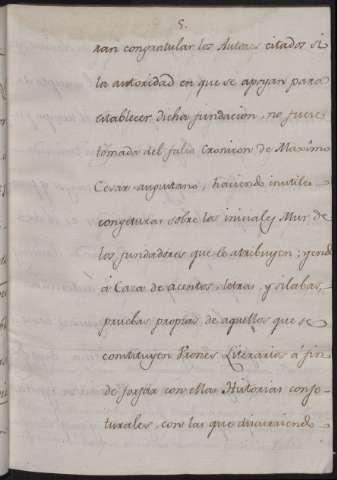 5.
ran congratular los Autores citados si
la autoridad en que se apoyan para
establecer dicha fundacion, no fuere
tomada del falso Cronicon de Maximo
Cesar-augustano, haciendo inutiles
congeturas sobre las iniciales Mur de
los fundadores que le atribuyen; yendo
à Caza de acentos, letras, y silabas,
pruebas propias de aquellos que se
constituyen Leones Literarios à fin
de forjar con ellas Historias conje-
turales, con las que discurriendo